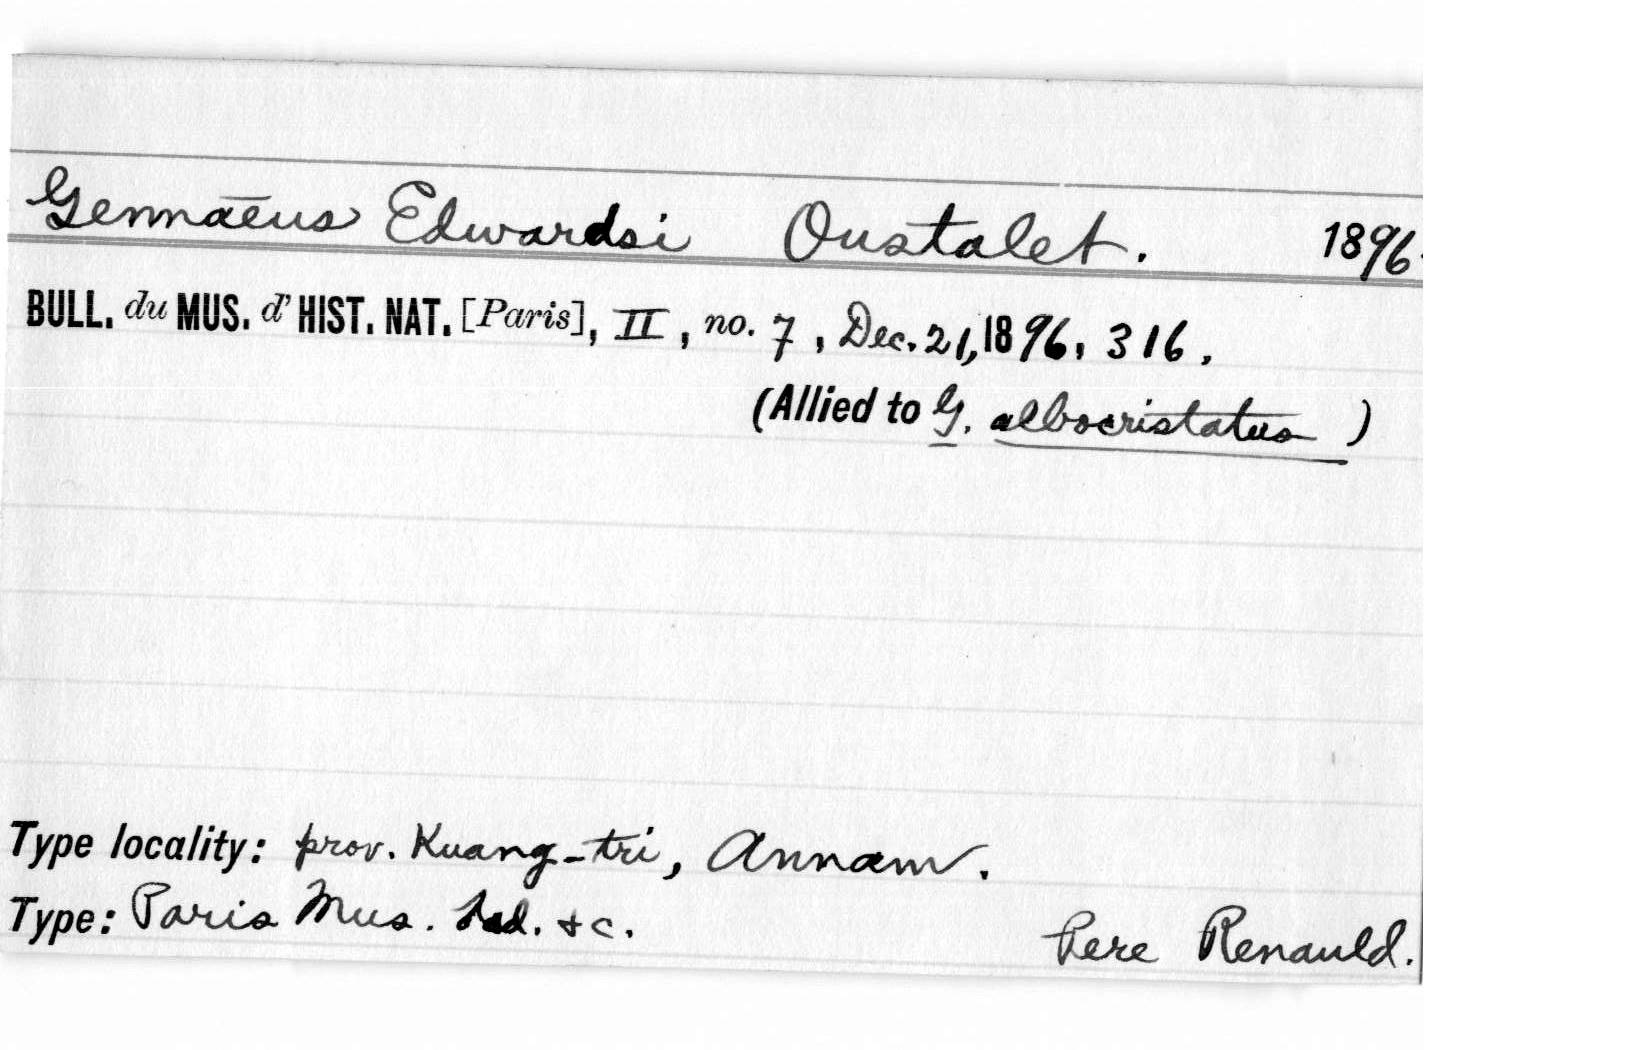 Gennaeus Edwardsi Oustalet. 1896.
BULL. du MUS. d'HIST. NAT. [Paris], II, no. 7, Dec. 21, 1896, 316.
(Allied to G. albocristatus)
Type locality: prov. Kuang-tri, Annam.
Type: Paris Mus. &c. Pere Renauld.